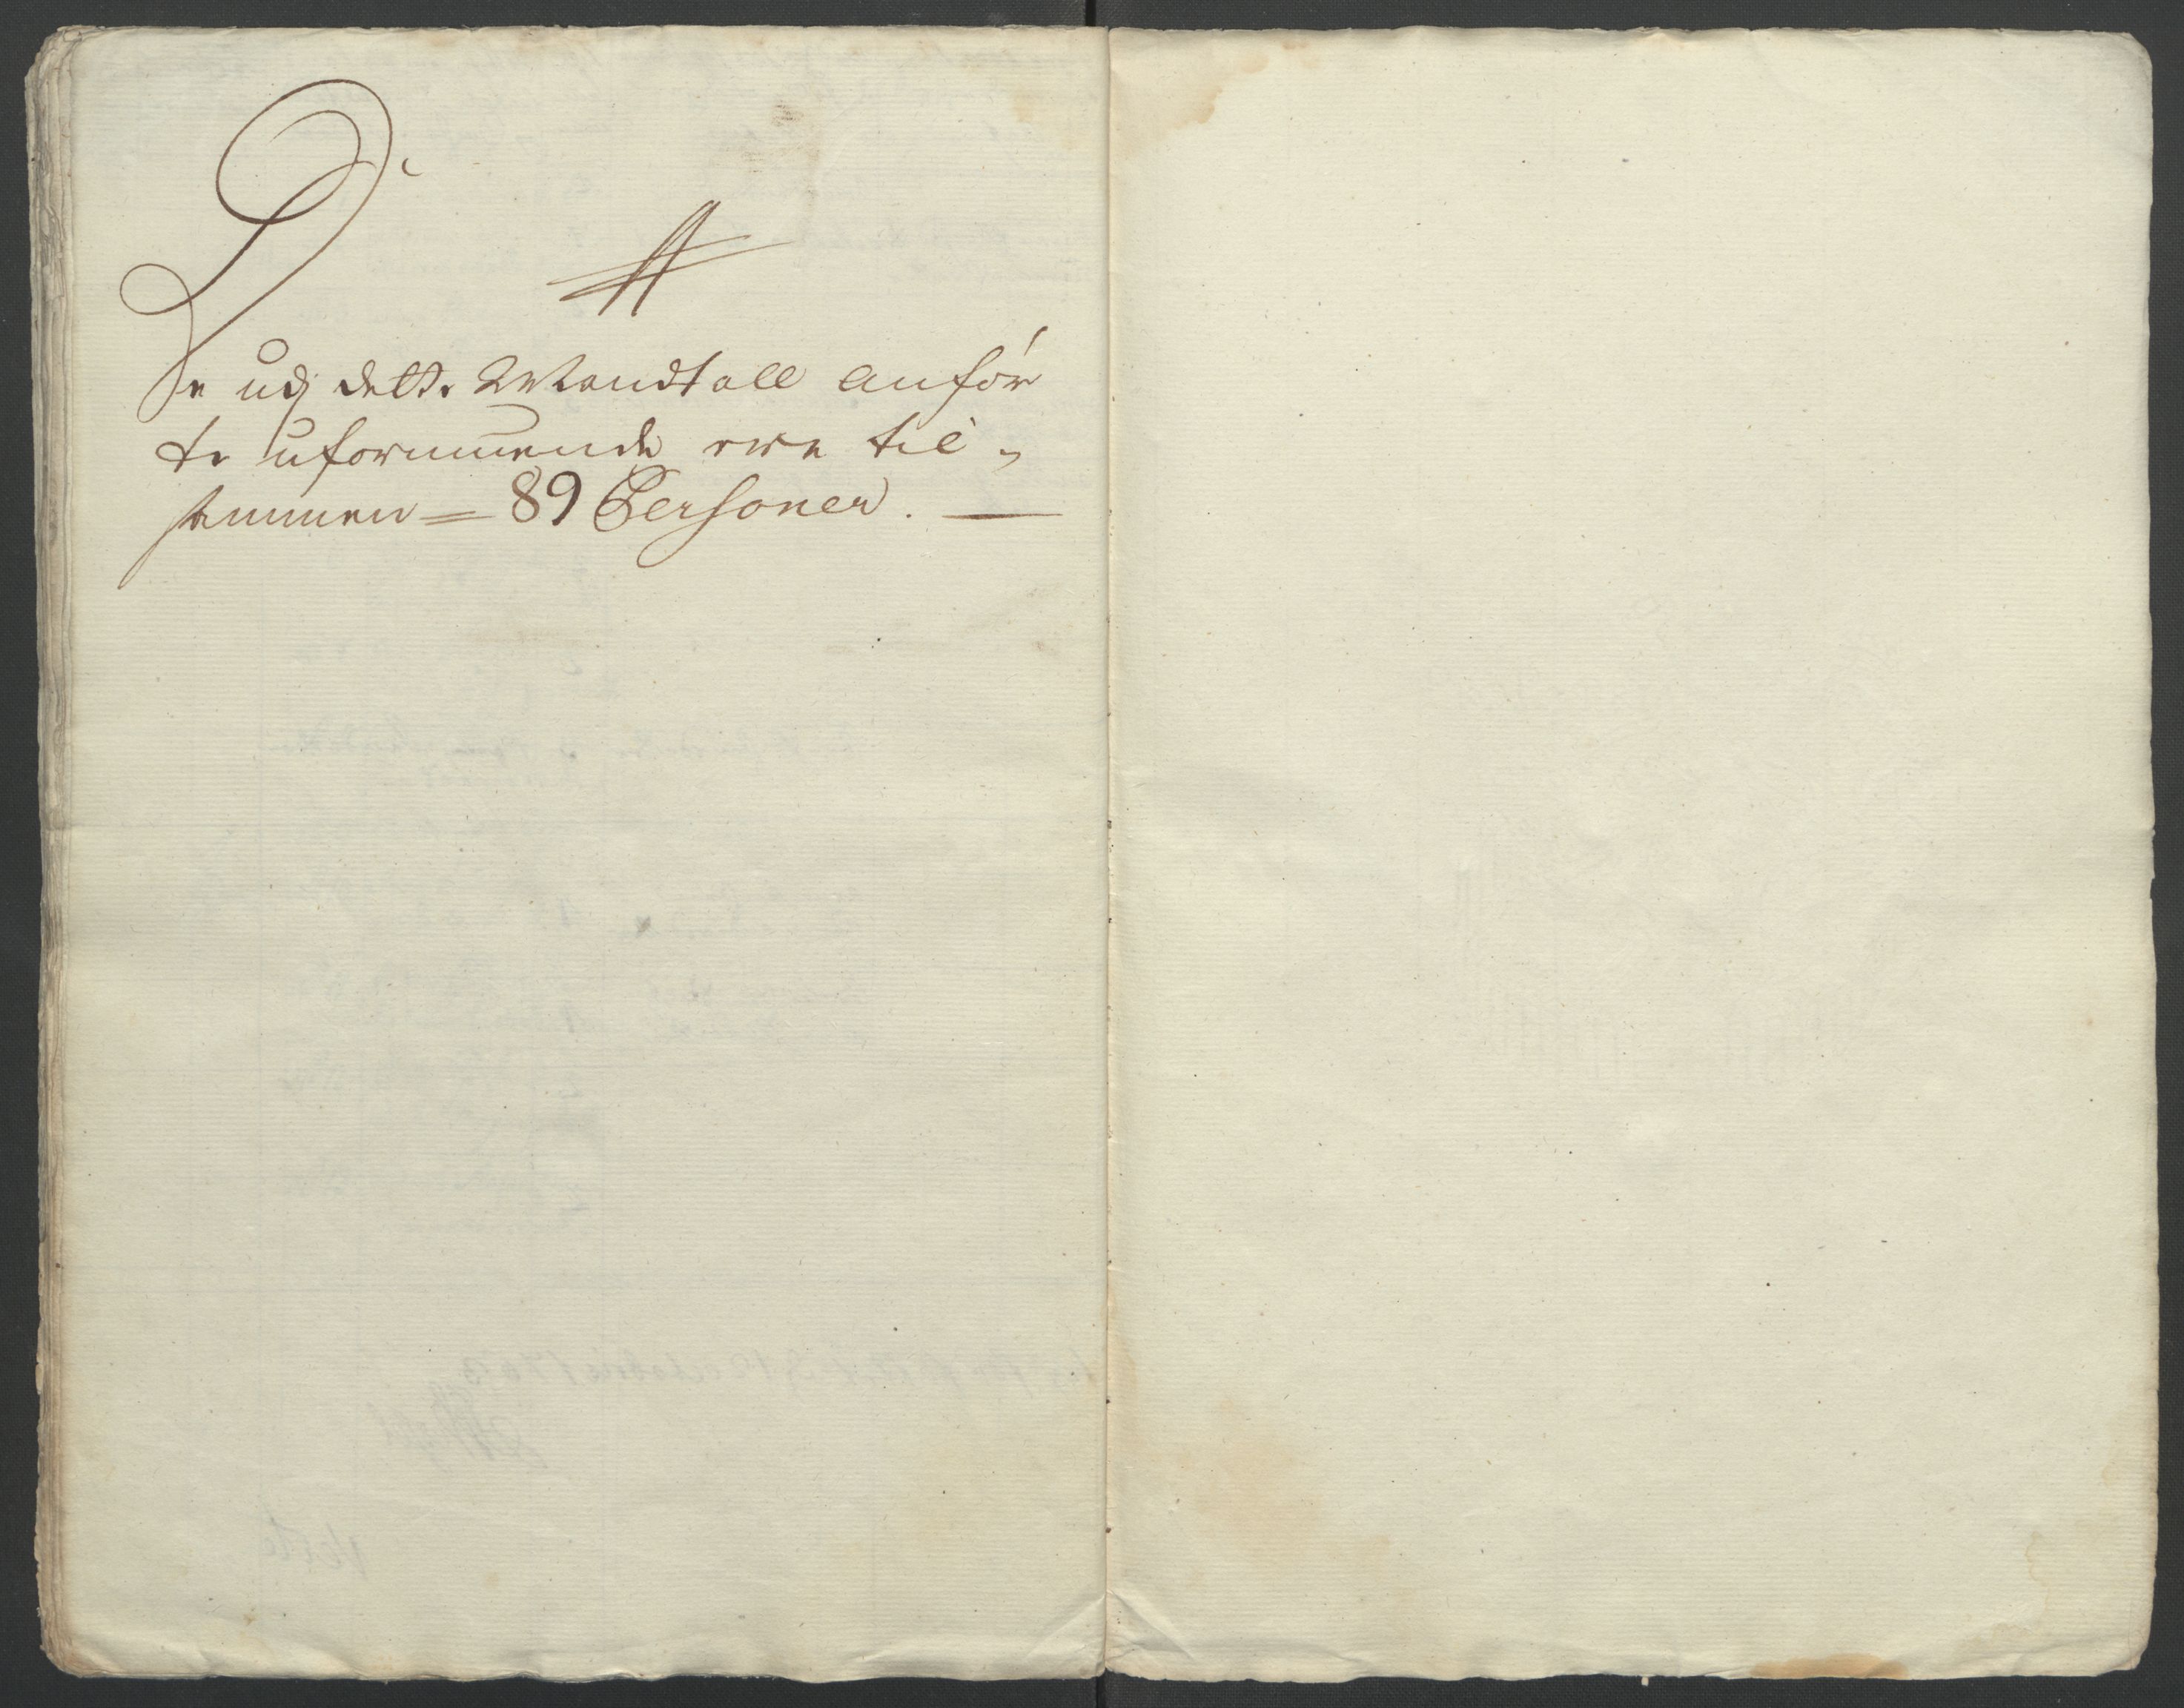 De udj dette Mandtall anfør
te uformuende ere til-
sammen = 89 Personer. —